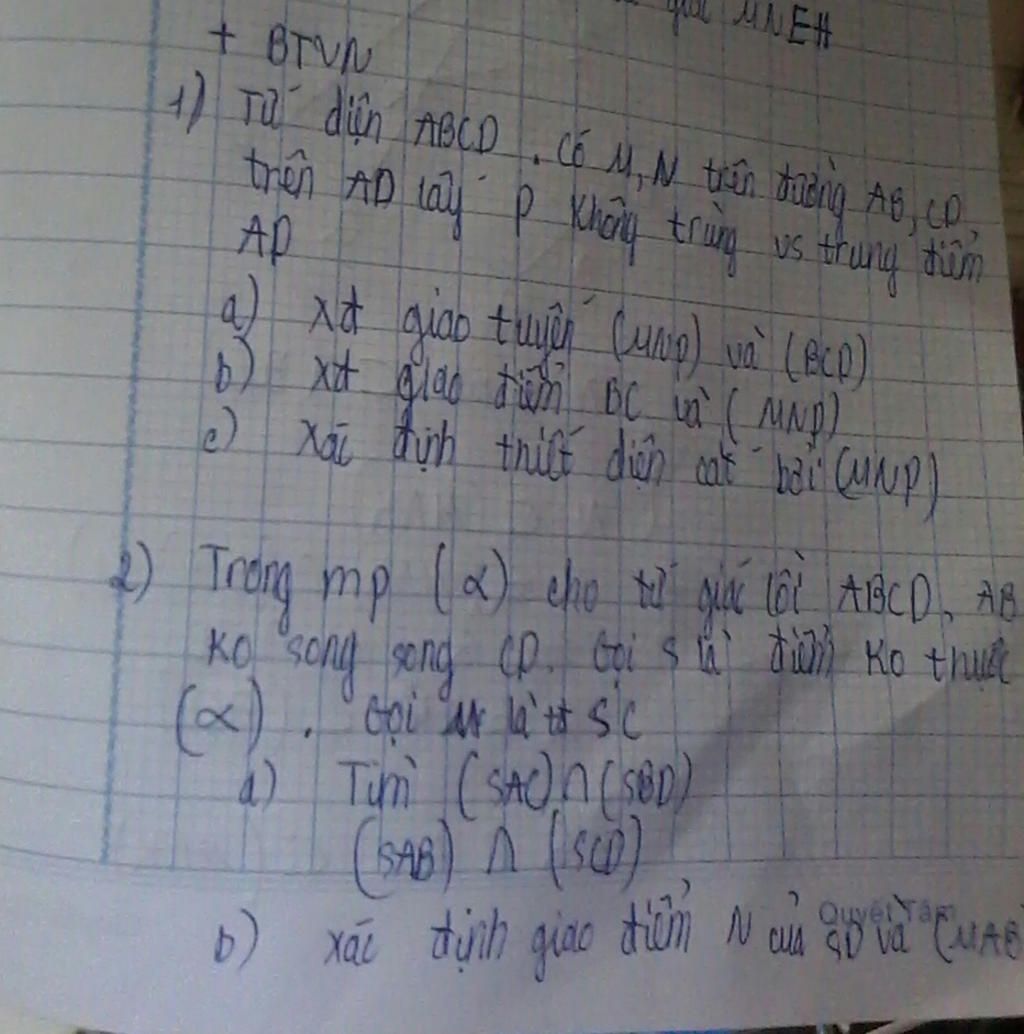 MNEH
+ BTVN
1) Tứ diện ABCD. Có M, N trên đường AB, CD,
trên AD lấy P không trùng vs trung điểm
AD
a) Xđ giao tuyến (MNP) và (BCD)
b) xđ giao điểm BC và (MNP)
c) Xác định thiết diện cắt bởi (MNP)
2) Trong mp (α) cho tứ giác lồi ABCD, AB
ko song song CD. Gọi S là điểm ko thuộc
(α). Gọi M là tđ SC
a) Tìm (SAC) ∩ (SBD)
(SAB) ∩ (SCD)
b) xác định giao điểm N của SD và (MAB
Quyết Tâm